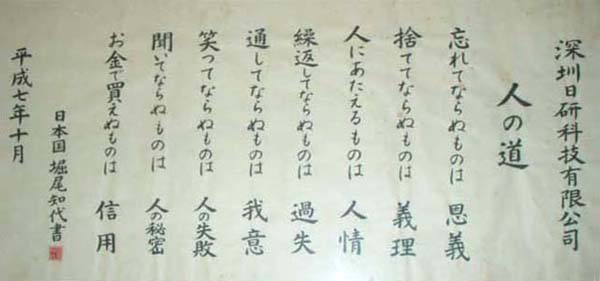 深圳日研科技有限公司
人の道
忘れてならぬものは 恩義
捨ててならぬものは 義理
人にあたえるものは 人情
繰返してならぬものは 過失
通してならぬものは 我意
笑ってならぬものは 人の失敗
聞いてならぬものは 人の秘密
お金で買えぬものは 信用
日本国 堀尾知代書
平成七年十月